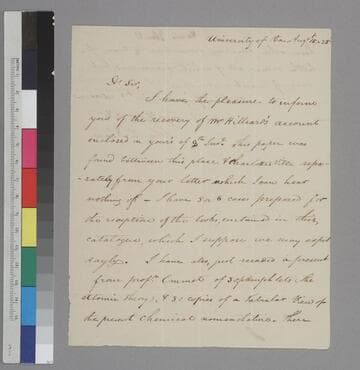 University of Va Aug
Dr Sir,
I have the pleasure to inform
you of the recovery of Mr Hilliard's account
enclosed in yours of This paper was
found between this place & Charlottesville sepa-
-rately from your letter which I can hear
nothing of – I have 5 or 6 cases prepared for
the reception of the books, contained in this,
catalogue which I suppose we may expect
dayly. I have also, just received a present
from profr. Emmet of 30 pamphlets, the
Atomic theory, & 30 copies of a tabular View of
the present Chemical nomenclature. These